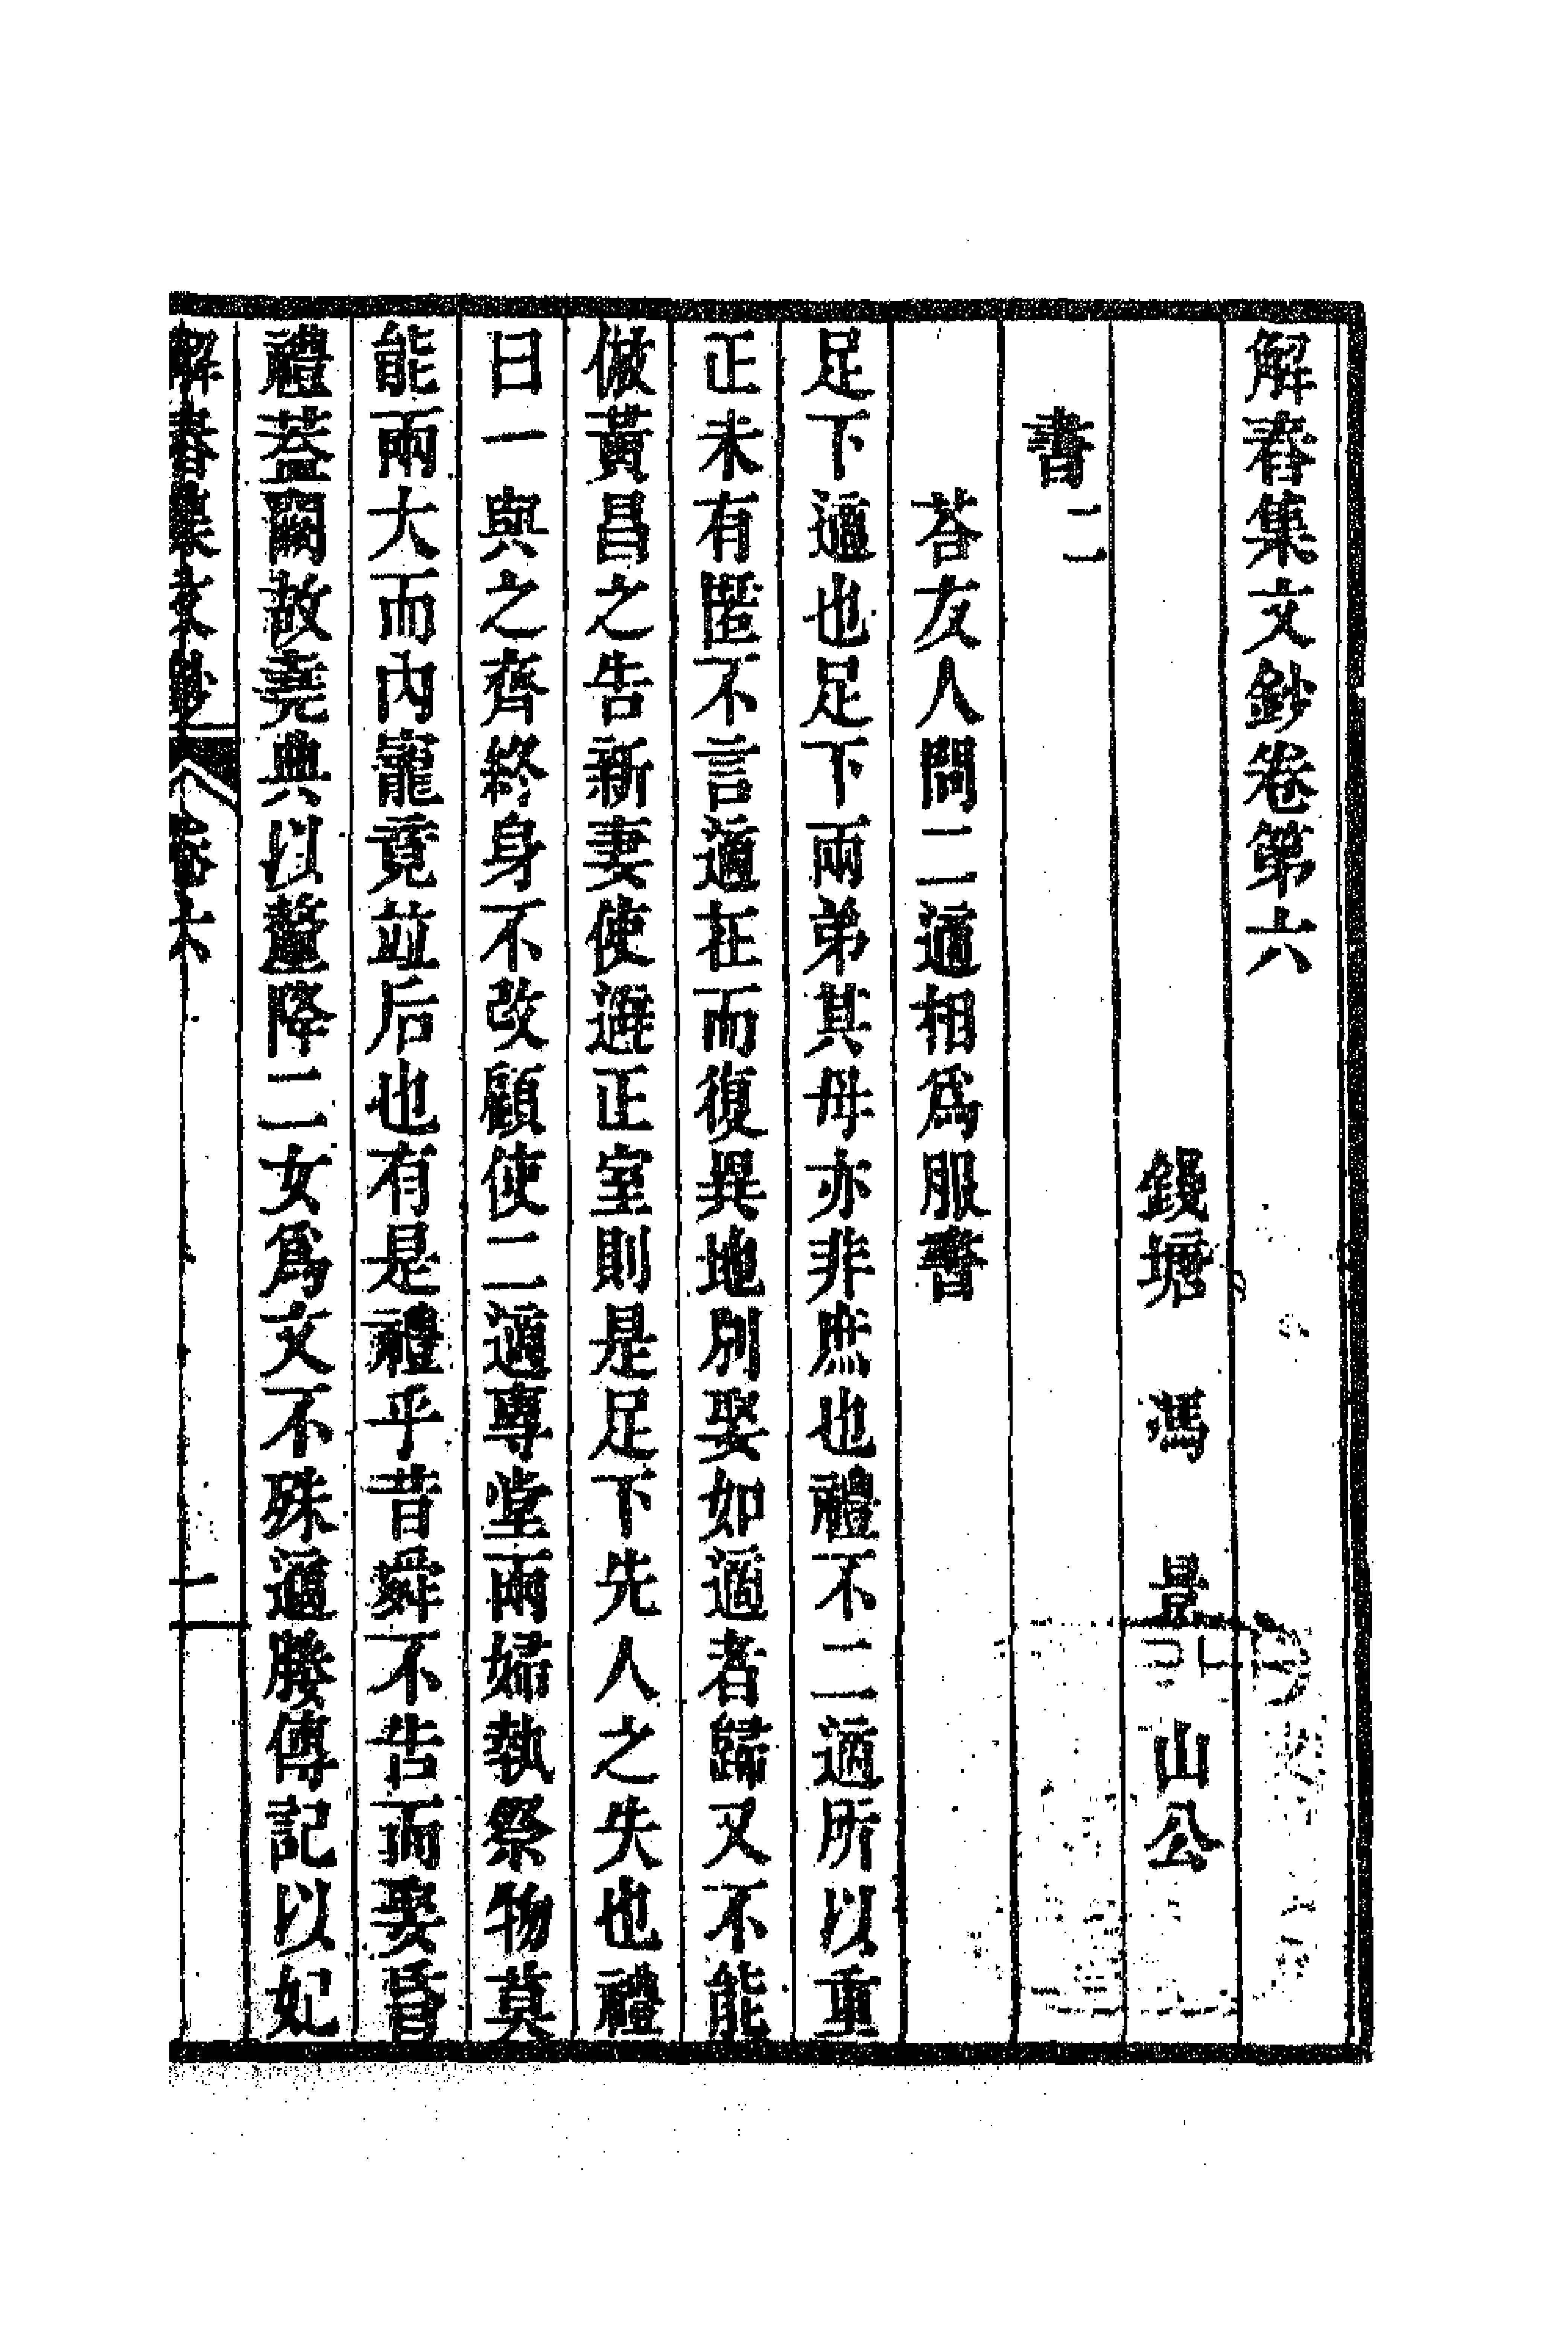 解舂集文鈔卷第六
錢塘 馮 景 山公
書二
荅友人問二適相爲服書
足下適也足下兩弟其母亦非庶也禮不二適所以重
正未有匿不言適在而復異地別娶如適者歸又不能
倣黃昌之告新妻使避正室則是足下先人之失也禮
曰一與之齊終身不改顧使二適專堂兩婦執祭物莫
能兩大而內寵竟竝后也有是禮乎昔舜不告而娶昏
禮蓋闕故堯典以釐降二女爲文不殊適媵傳記以妃
解舂集文鈔 卷六 一